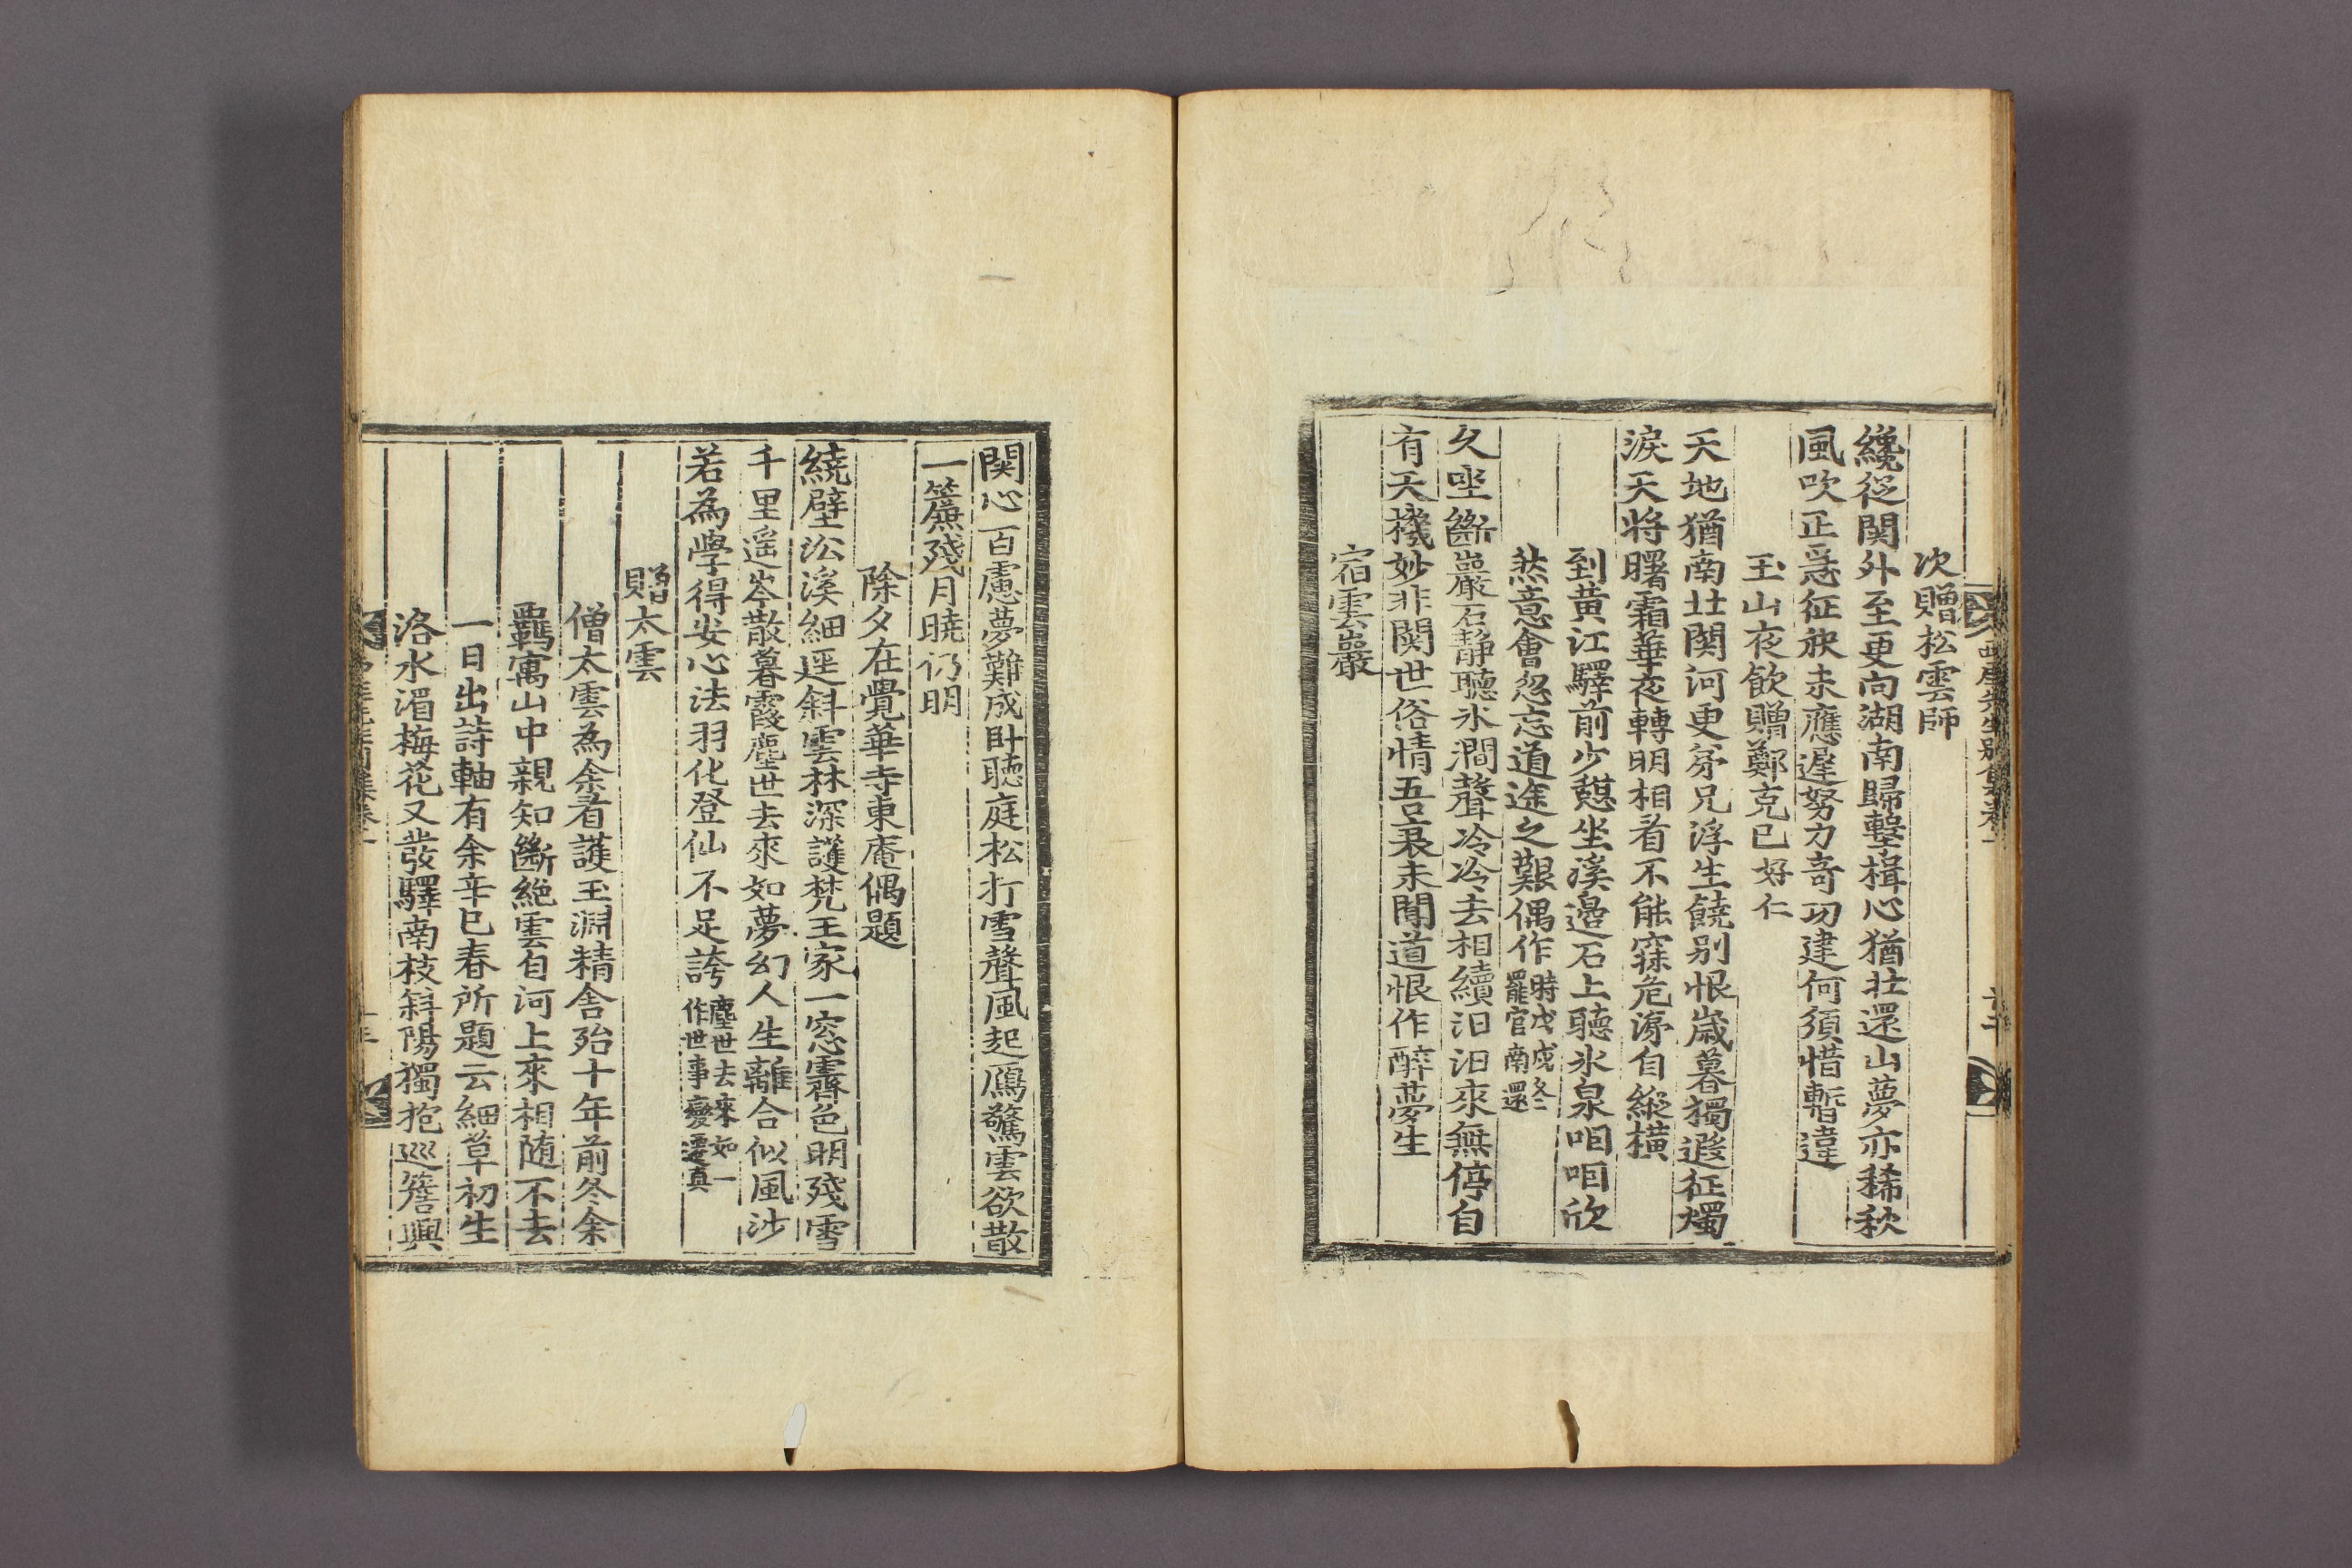 次贈松雲師
纔從関外至更向湖南歸擊楫心猶壯還山夢亦稀秋
風吹正急征袂未應遲努力奇功建何須惜暫違
玉山夜飮贈鄭克已好仁
天地猶南壯関河更弟兄浮生饒別恨歲暮獨遐征燭
淚天將曙霜華夜轉明相看不能寐危涕自縱橫
到黃江驛前少憇坐溪邊石上聽氷泉咱咱欣
然意會忽忘道途之艱偶作
時戊戌冬
罷官南還
久坐斷巖石靜聽氷澗聲冷冷去相續汨汨來無停自
有天機妙非関世俗情吾衰未聞道恨作醉夢生
宿雲巖
関心百慮夢難成臥聽庭松打雪聲風起鴈驚雲欲散
一簾殘月曉仍明
除夕在覺華寺東庵偶題
繞壁沿溪細逕斜雲林深護梵王家一窓霽色明殘雪
千里遙岑散暮霞塵世去來如夢幻人生離合似風沙
若為學得安心法羽化登仙不足誇
塵世去來如一
作世事變遷真
贈太雲
僧太雲為余看護玉淵精舍殆十年前冬余
羈寓山中親知斷絶雲自河上來相随不去
一日出詩軸有余辛巳春所題云細草初生
洛水湄梅花又發驛南枝斜陽獨抱巡簷興